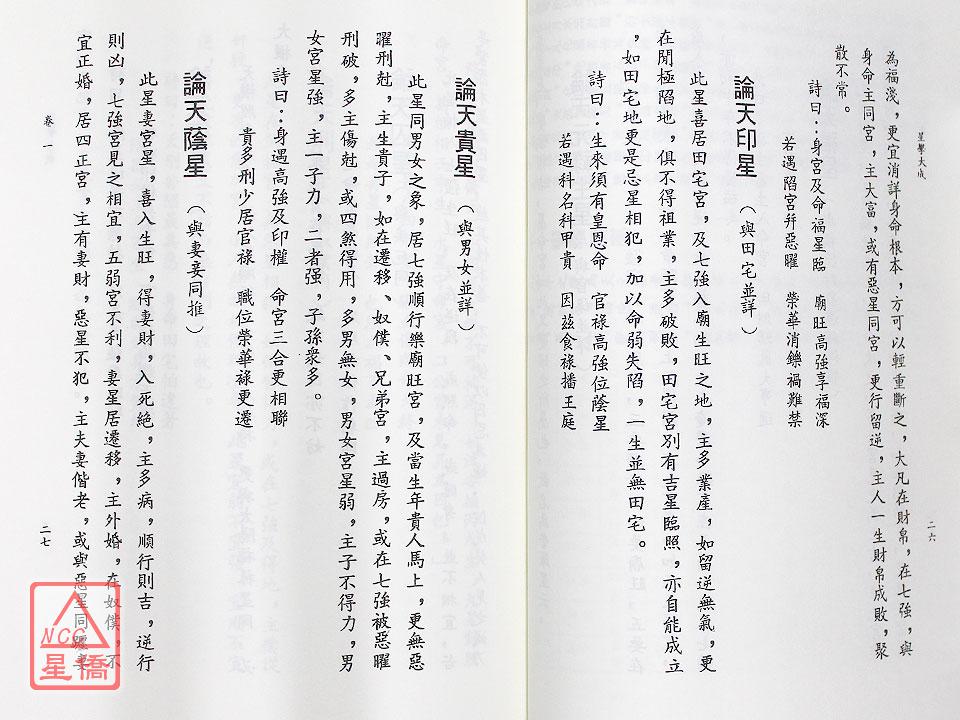 星學大成
為福淺，更宜消詳身命根本，方可以輕重斷之，大凡在財帛，在七強，與
身命主同宮，主大富，或有惡星同宮，更行留逆，主人一生財帛成敗，聚
散不常。
詩曰：身宮及命福星臨　廟旺高強享福深
若遇陷宮并惡曜　榮華消鑠禍難禁
論天印星（與田宅並詳）
此星喜居田宅宮，及七強入廟生旺之地，主多業產，如留逆無氣，更
在閒極陷地，俱不得祖業，主多破敗，田宅宮別有吉星臨照，亦自能成立
，如田宅地更是忌星相犯，加以命弱失陷，一生並無田宅。
詩曰：生來須有皇恩命　官祿高強位蔭星
若遇科名科甲貴　因茲食祿播王庭
二六
論天貴星（與男女並詳）
此星同男女之象，居七強順行樂廟旺宮，及當生年貴人馬上，更無惡
曜刑尅，主生貴子，如在遷移、奴僕、兄弟宮，主過房，或在七強被惡曜
刑破，多主傷尅，或四煞得用，多男無女，男女宮星弱，主子不得力，男
女宮星強，主一子力，二者强，子孫衆多。
詩曰：身遇高強及印權　命宮三合更相聯
貴多刑少居官祿　職位榮華祿更遷
論天蔭星（與妻妾同推）
此星妻宮星，喜入生旺，得妻財，入死絕，主多病，順行則吉，逆行
則凶，七強宮見之相宜，五弱宮不利，妻星居遷移，主外婚，在奴僕，不
宜正婚，居四正宮，主有妻財，惡星不犯，主夫妻偕老，或與惡星同躔，妻
卷一
二七
NCC
星僑